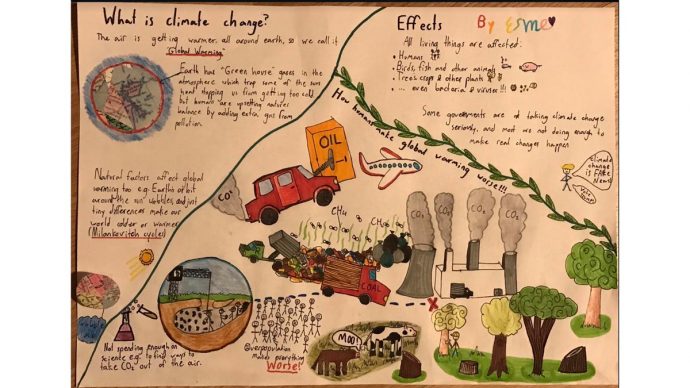 What is climate change?
The air is getting warmer, all around earth, so we call it
"Global Warming"
Earth has "Green house" gases in the
atmosphere which trap some of the sun
heat stopping us from getting too cold
but humans are upsetting natures
balance by adding extra gas from
pollution.
Natural factors affect global
warming too e.g. Earth's orbit
around the sun wobbles, and just
tiny differences make our
world colder or warmer
(Milankovitch cycles)
Not spending enough on
science e.g. to find ways to
take CO2 out of the air.
Effects
By Esme
All living things are affected:
• Humans
• Birds, fish and other animals
• Trees, crops & other plants
• ... even bacteria & viruses!!!
Some governments are not taking climate change
seriously, and most are not doing enough to
make real changes happen
Climate
change
is FAKE
News!
How humans make global warming worse!!!
OIL
CO2
CH4
CH4
CO2
CO2
CO2
CO2
COAL
Overpopulation
makes everything
Worse!
MOO!